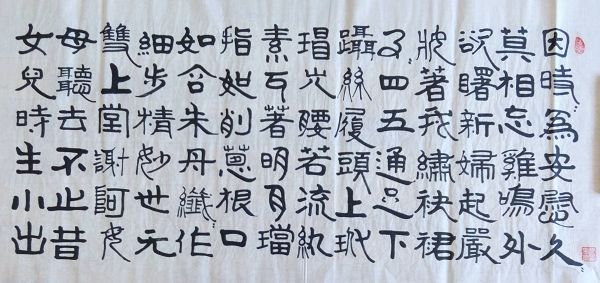 因時〻為安慰久〻
莫相忘雞鳴外
欲曙新婦起嚴
妝著我繡袂裙
四五通足下
躡絲履頭上玳
瑁光腰若流紈
素耳著明月璫
指如削蔥根口
如含朱丹纖〻作
細步精妙世无
雙上堂謝阿母
母聽去不止昔
女兒時生小出